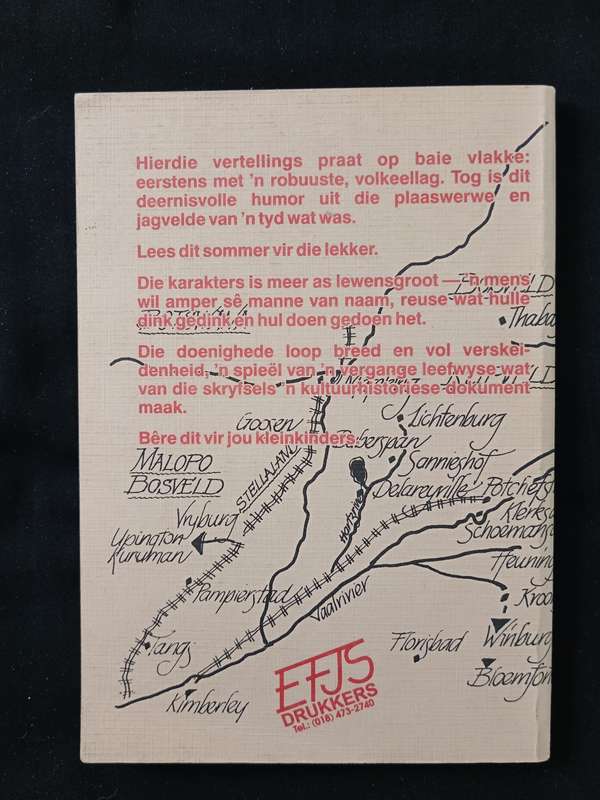 Hierdie vertellings praat op baie vlakke:
eerstens met 'n robuuste, volkeellag. Tog is dit
deernisvolle humor uit die plaaswerwe en
jagvelde van 'n tyd wat was.
Lees dit sommer vir die lekker.
Die karakters is meer as lewensgroot — 'n mens
wil amper sê manne van naam, reuse wat hulle
dink gedink en hul doen gedoen het.
Die doenighede loop breed en vol verskei-
denheid, 'n spieël van 'n vergange leefwyse wat
van die skryfsels 'n kultuurhistoriese dokument
maak.
Bêre dit vir jou kleinkinders.
Thaba
Goosen
Lichtenburg
Barberspan
Sannieshof
MALOPO
BOSVELD
STELLALAND
Delareyville
Potchefs
Hartsrivier
Vryburg
Klerksd
Schoemansd
Upington
Kuruman
Heuning
Pampierstad
Vaalrivier
Kroon
Tangs
Florisbad
Winburg
Bloemfon
Kimberley
EFJS
DRUKKERS
Tel.: (018) 473-2740